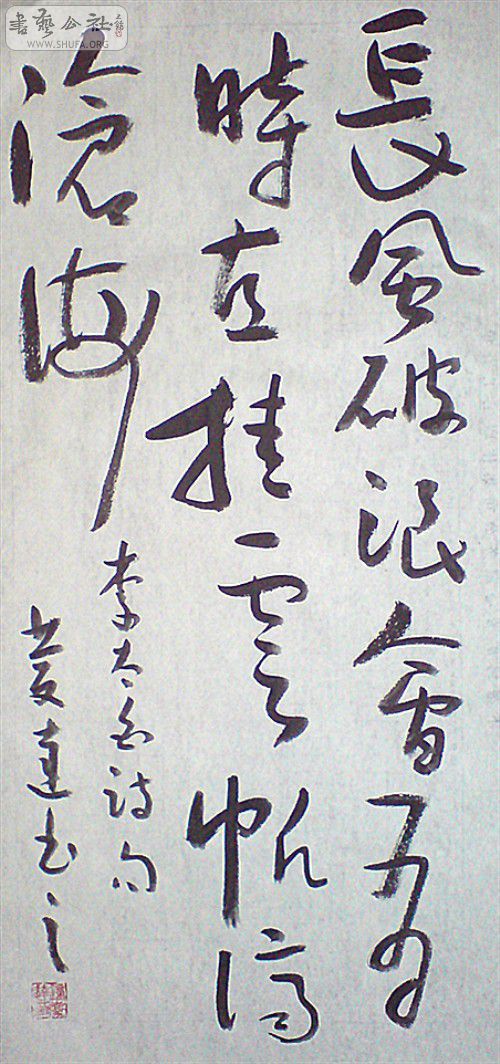 書藝公社
WWW.SHUFA.ORG
長風破浪會有
時直挂雲帆濟
滄海
李太白詩句
達书之